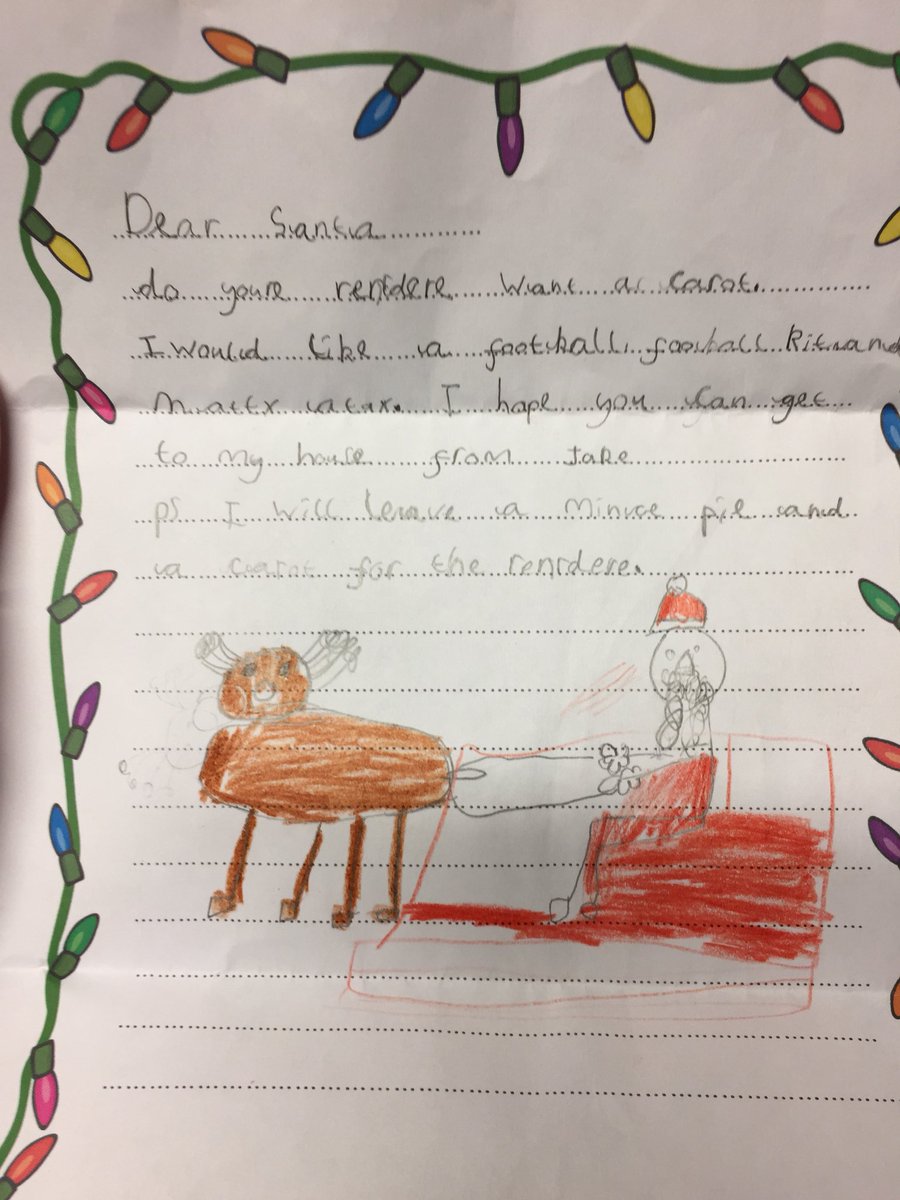 Dear Santa
do youre rendere want a carot.
I would like a football, football kit and
Matty atax. I hope you can get
to my house from Jake
ps I will leave a mince pie and
a carot for the renrdere.